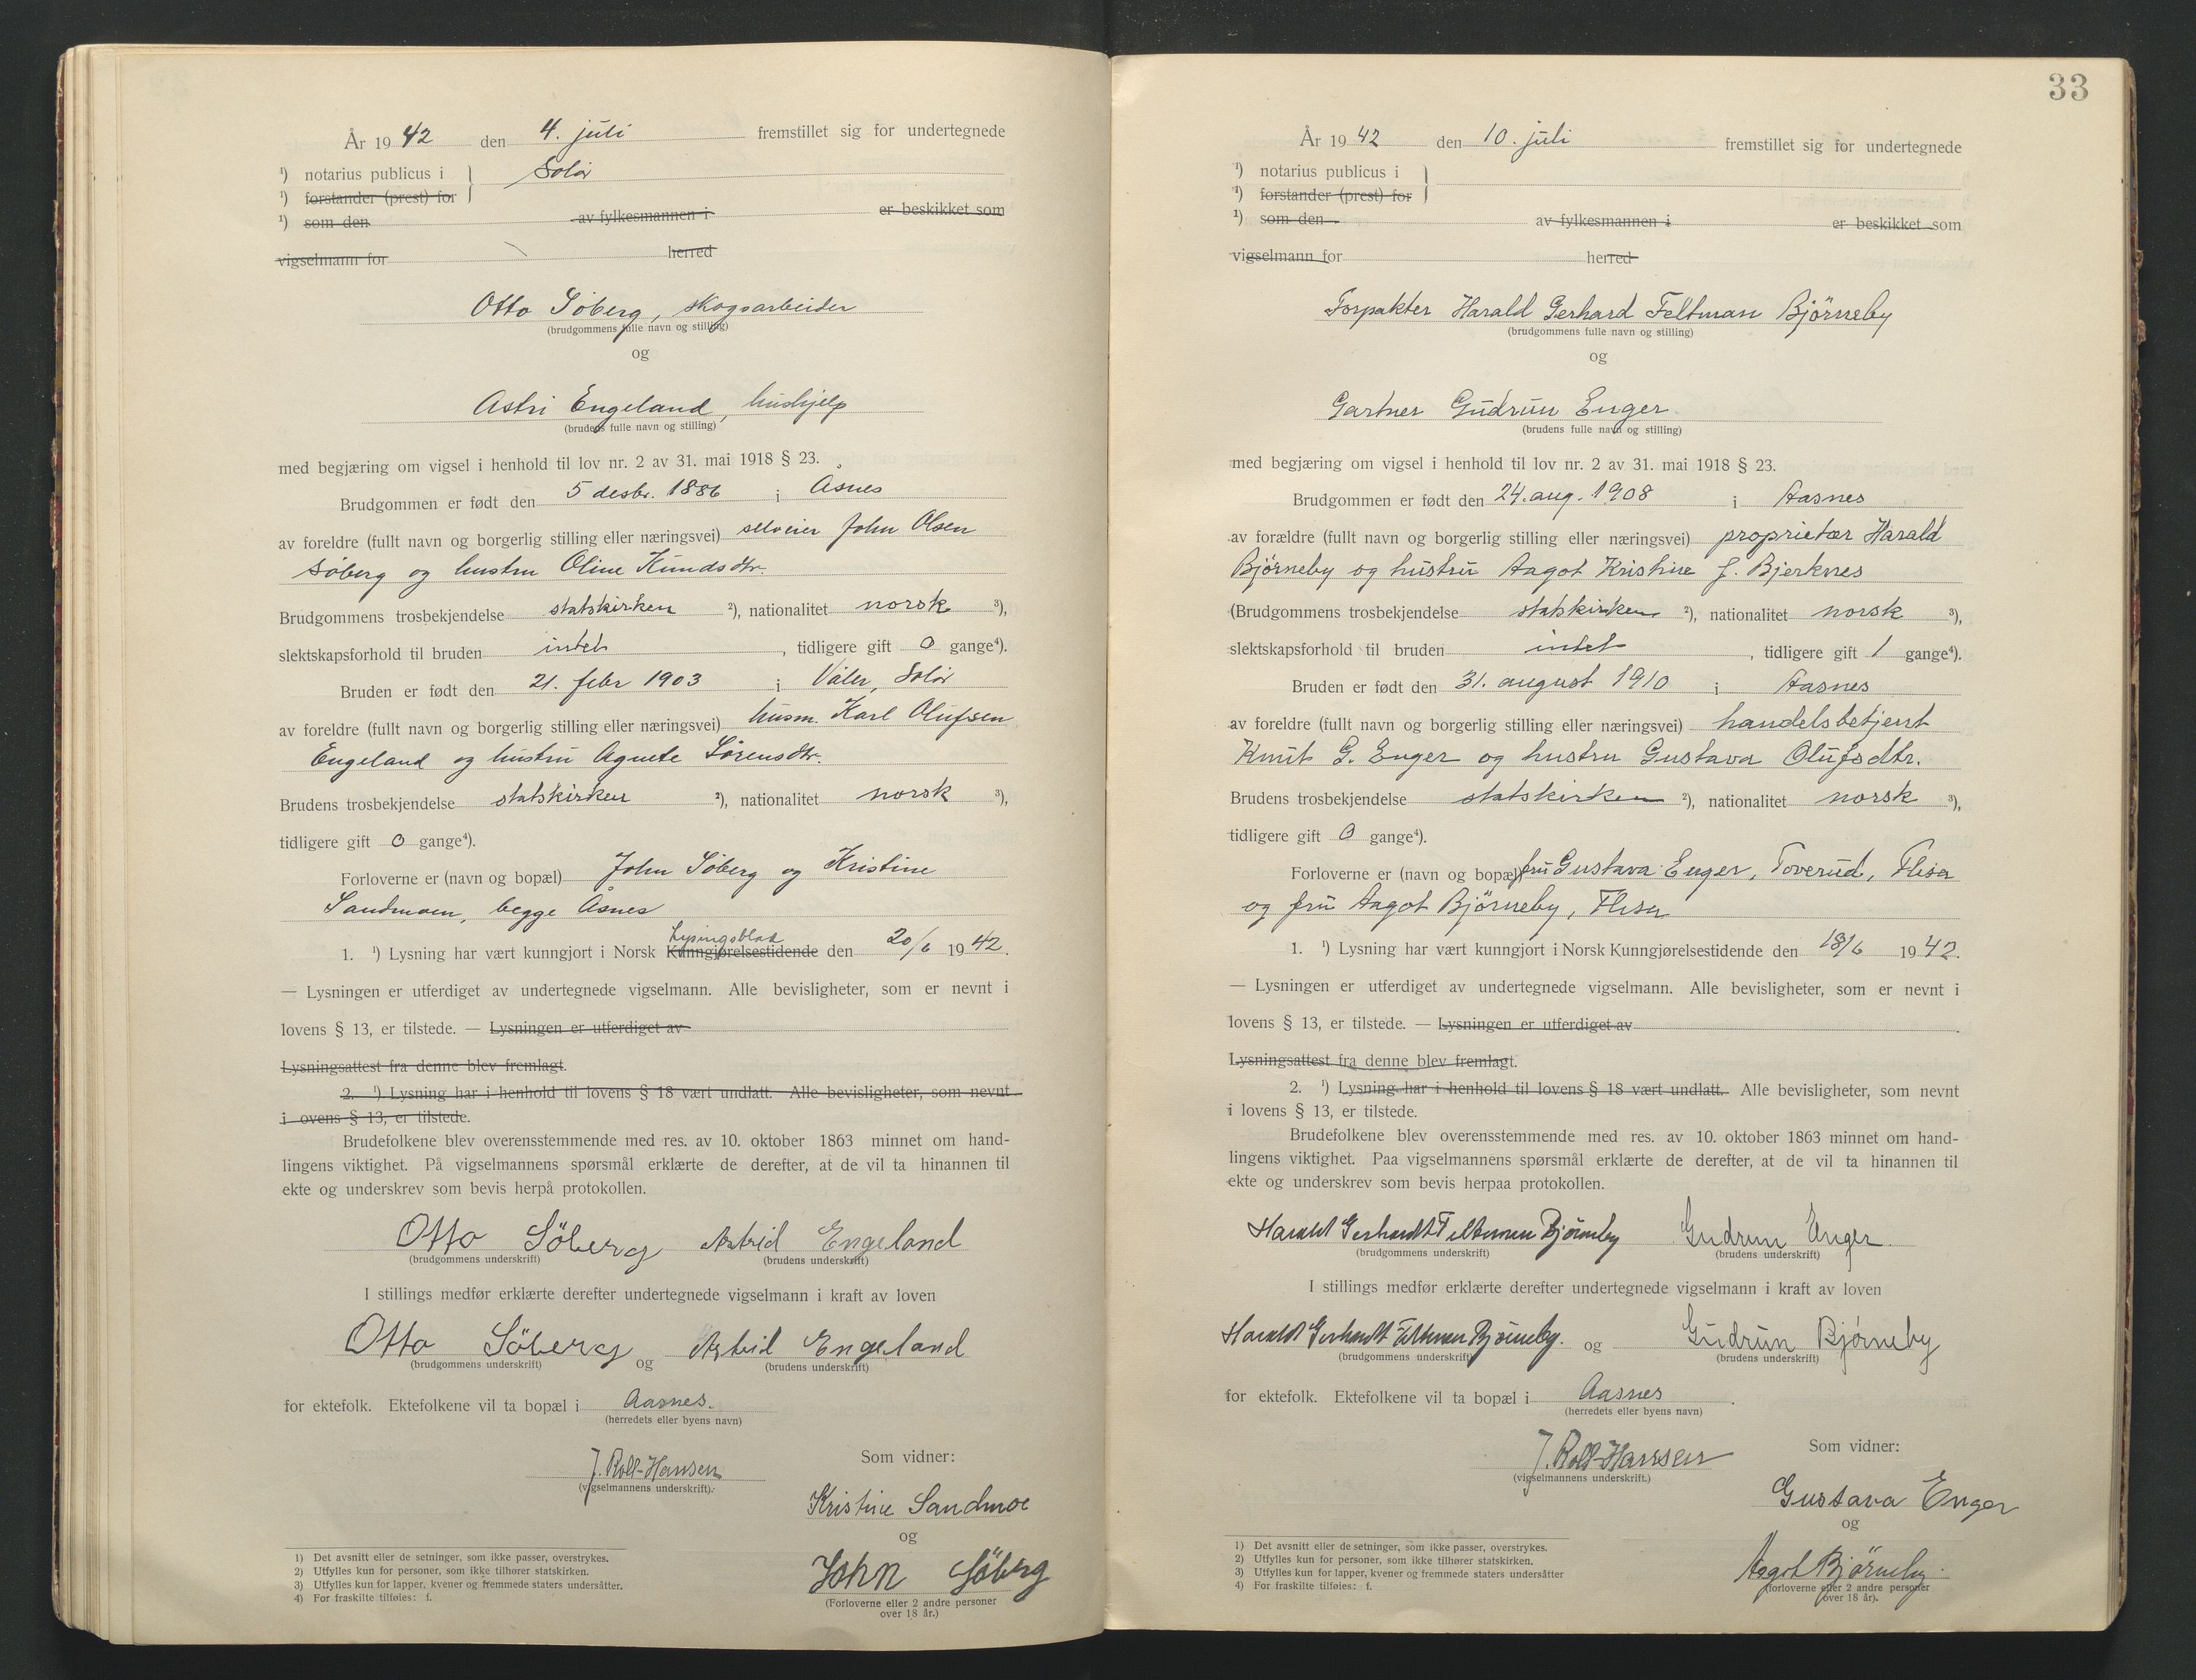 År 1942 den 4. juli fremstillet sig for undertegnede
¹) notarius publicus i Solør
¹) forstander (prest) for
¹) som den av fylkesmannen i er beskikket som
vigselmann for herred
Otto Söberg, skogsarbeider
(brudgommens fulle navn og stilling)
og
Astri Engeland, hushjelp
(brudens fulle navn og stilling)
med begjæring om vigsel i henhold til lov nr. 2 av 31. mai 1918 § 23.
Brudgommen er født den 5 desbr. 1886 i Åsnes
av foreldre (fullt navn og borgerlig stilling eller næringsvei) selveier John Olsen
Söberg og hustru Oline Knudsdtr.
Brudgommens trosbekjendelse statskirken ²), nationalitet norsk ³),
slektskapsforhold til bruden intet, tidligere gift 0 gange⁴).
Bruden er født den 21. febr 1903 i Våler, Solör
av foreldre (fullt navn og borgerlig stilling eller næringsvei) husm. Karl Olufsen
Engeland og hustru Agnete Sörensdtr.
Brudens trosbekjendelse statskirken ²), nationalitet norsk ³),
tidligere gift 0 gange⁴).
Forloverne er (navn og bopæl) John Söberg og Kristine
Sandmoen, begge Åsnes
Lysingsblad
1. ¹) Lysning har vært kunngjort i Norsk Kunngjørelsestidende den 20/6 1942.
— Lysningen er utferdiget av undertegnede vigselmann. Alle bevisligheter, som er nevnt i
lovens § 13, er tilstede. — Lysningen er utferdiget av
Lysningsattest fra denne blev fremlagt.
2. ¹) Lysning har i henhold til lovens § 18 vært undlatt. Alle bevisligheter, som nevnt
i ovens § 13, er tilstede.
Brudefolkene blev overensstemmende med res. av 10. oktober 1863 minnet om hand-
lingens viktighet. På vigselmannens spørsmål erklærte de derefter, at de vil ta hinannen til
ekte og underskrev som bevis herpå protokollen.
Otto Söberg Astrid Engeland
(brudgommens underskrift) (brudens underskrift)
I stillings medfør erklærte derefter undertegnede vigselmann i kraft av loven
Otto Söberg og Astrid Engeland
(brudgommens underskrift) (brudens underskrift)
for ektefolk. Ektefolkene vil ta bopæl i Aasnes.
(herredets eller byens navn)
Som vidner:
J. Roll-Hansen
(vigselmannens underskrift).
Kristine Sandmoe
og
John Söberg
(Forloverne eller 2 andre personer
over 18 år.)
1) Det avsnitt eller de setninger, som ikke passer, overstrykes.
2) Utfylles kun for personer, som ikke tilhører statskirken.
3) Utfylles kun for lapper, kvener og fremmede staters undersåtter.
4) For fraskilte tilføies: f.
33
År 1942 den 10. juli fremstillet sig for undertegnede
¹) notarius publicus i
¹) forstander (prest) for
¹) som den av fylkesmannen i er beskikket som
vigselmann for herred
Forpakter Harald Gerhard Feltman Björneby
(brudgommens fulle navn og stilling)
og
Gartner Gudrun Enger
(brudens fulle navn og stilling)
med begjæring om vigsel i henhold til lov nr. 2 av 31. mai 1918 § 23.
Brudgommen er født den 24. aug. 1908 i Aasnes
av forældre (fullt navn og borgerlig stilling eller næringsvei) proprietær Harald
Björneby og hustru Aagot Kristine f. Bjerknes
(Brudgommens trosbekjendelse statskirken ²), nationalitet norsk ³),
slektskapsforhold til bruden intet, tidligere gift 1 gange⁴).
Bruden er født den 31. august 1910 i Aasnes
av foreldre (fullt navn og borgerlig stilling eller næringsvei) handelsbetjent
Knut G. Enger og hustru Gustava Olufsdtr.
Brudens trosbekjendelse statskirken ²), nationalitet norsk ³),
tidligere gift 0 gange⁴).
Forloverne er (navn og bopæl) fru Gustava Enger, Toverud, Flisa
og fru Aagot Björneby, Flisa
1. ¹) Lysning har vært kunngjort i Norsk Kunngjørelsestidende den 18/6 1942.
— Lysningen er utferdiget av undertegnede vigselmann. Alle bevisligheter, som er nevnt i
lovens § 13, er tilstede. — Lysningen er utferdiget av
Lysningsattest fra denne blev fremlagt.
2. ¹) Lysning har i henhold til lovens § 18 vært undlatt. Alle bevisligheter, som nevnt
i lovens § 13, er tilstede.
Brudefolkene blev overensstemmende med res. av 10. oktober 1863 minnet om hand-
lingens viktighet. Paa vigselmannens spørsmål erklærte de derefter, at de vil ta hinannen til
ekte og underskrev som bevis herpaa protokollen.
Harald Gerhardt Feltman Björneby Gudrun Enger
(brudgommens underskrift) (brudens underskrift)
I stillings medfør erklærte derefter undertegnede vigselmann i kraft av loven
Harald Gerhardt Feltman Björneby. og Gudrun Björneby
(brudgommens underskrift) (brudens underskrift)
for ektefolk. Ektefolkene vil ta bopæl i Aasnes.
(herredets eller byens navn)
Som vidner:
J. Roll-Hansen
(vigselmannens underskrift.)
Gustava Enger
og
Aagot Björneby.
(forloverne eller 2 andre personer
over 18 år).
1) Det avsnitt eller de setninger, som ikke passer, overstrykes.
2) Utfylles kun for personer, som ikke tilhører statskirken.
3) Utfylles kun for lapper, kvener og fremmede staters undersåtter
4) For fraskilte tilføies: f.